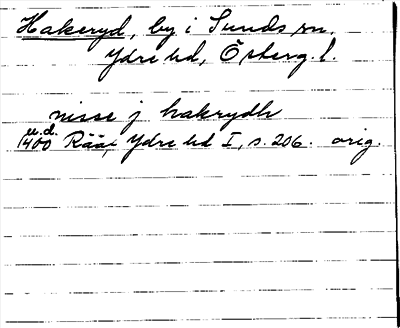 Hakeryd, by i Sunds sn.
Ydre hd, Österg. l.
nisse j hakrydh
u.d.
1400 Rääf, Ydre hd I, s. 206. orig.